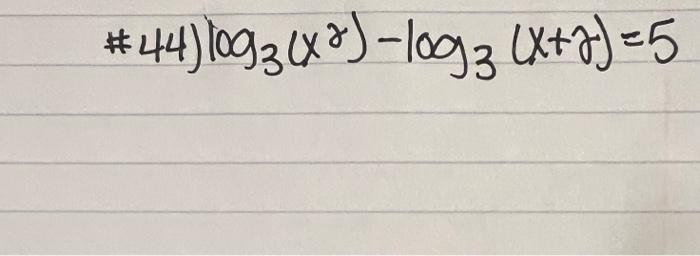 #44) log₃(x²) - log₃ (x+2) = 5